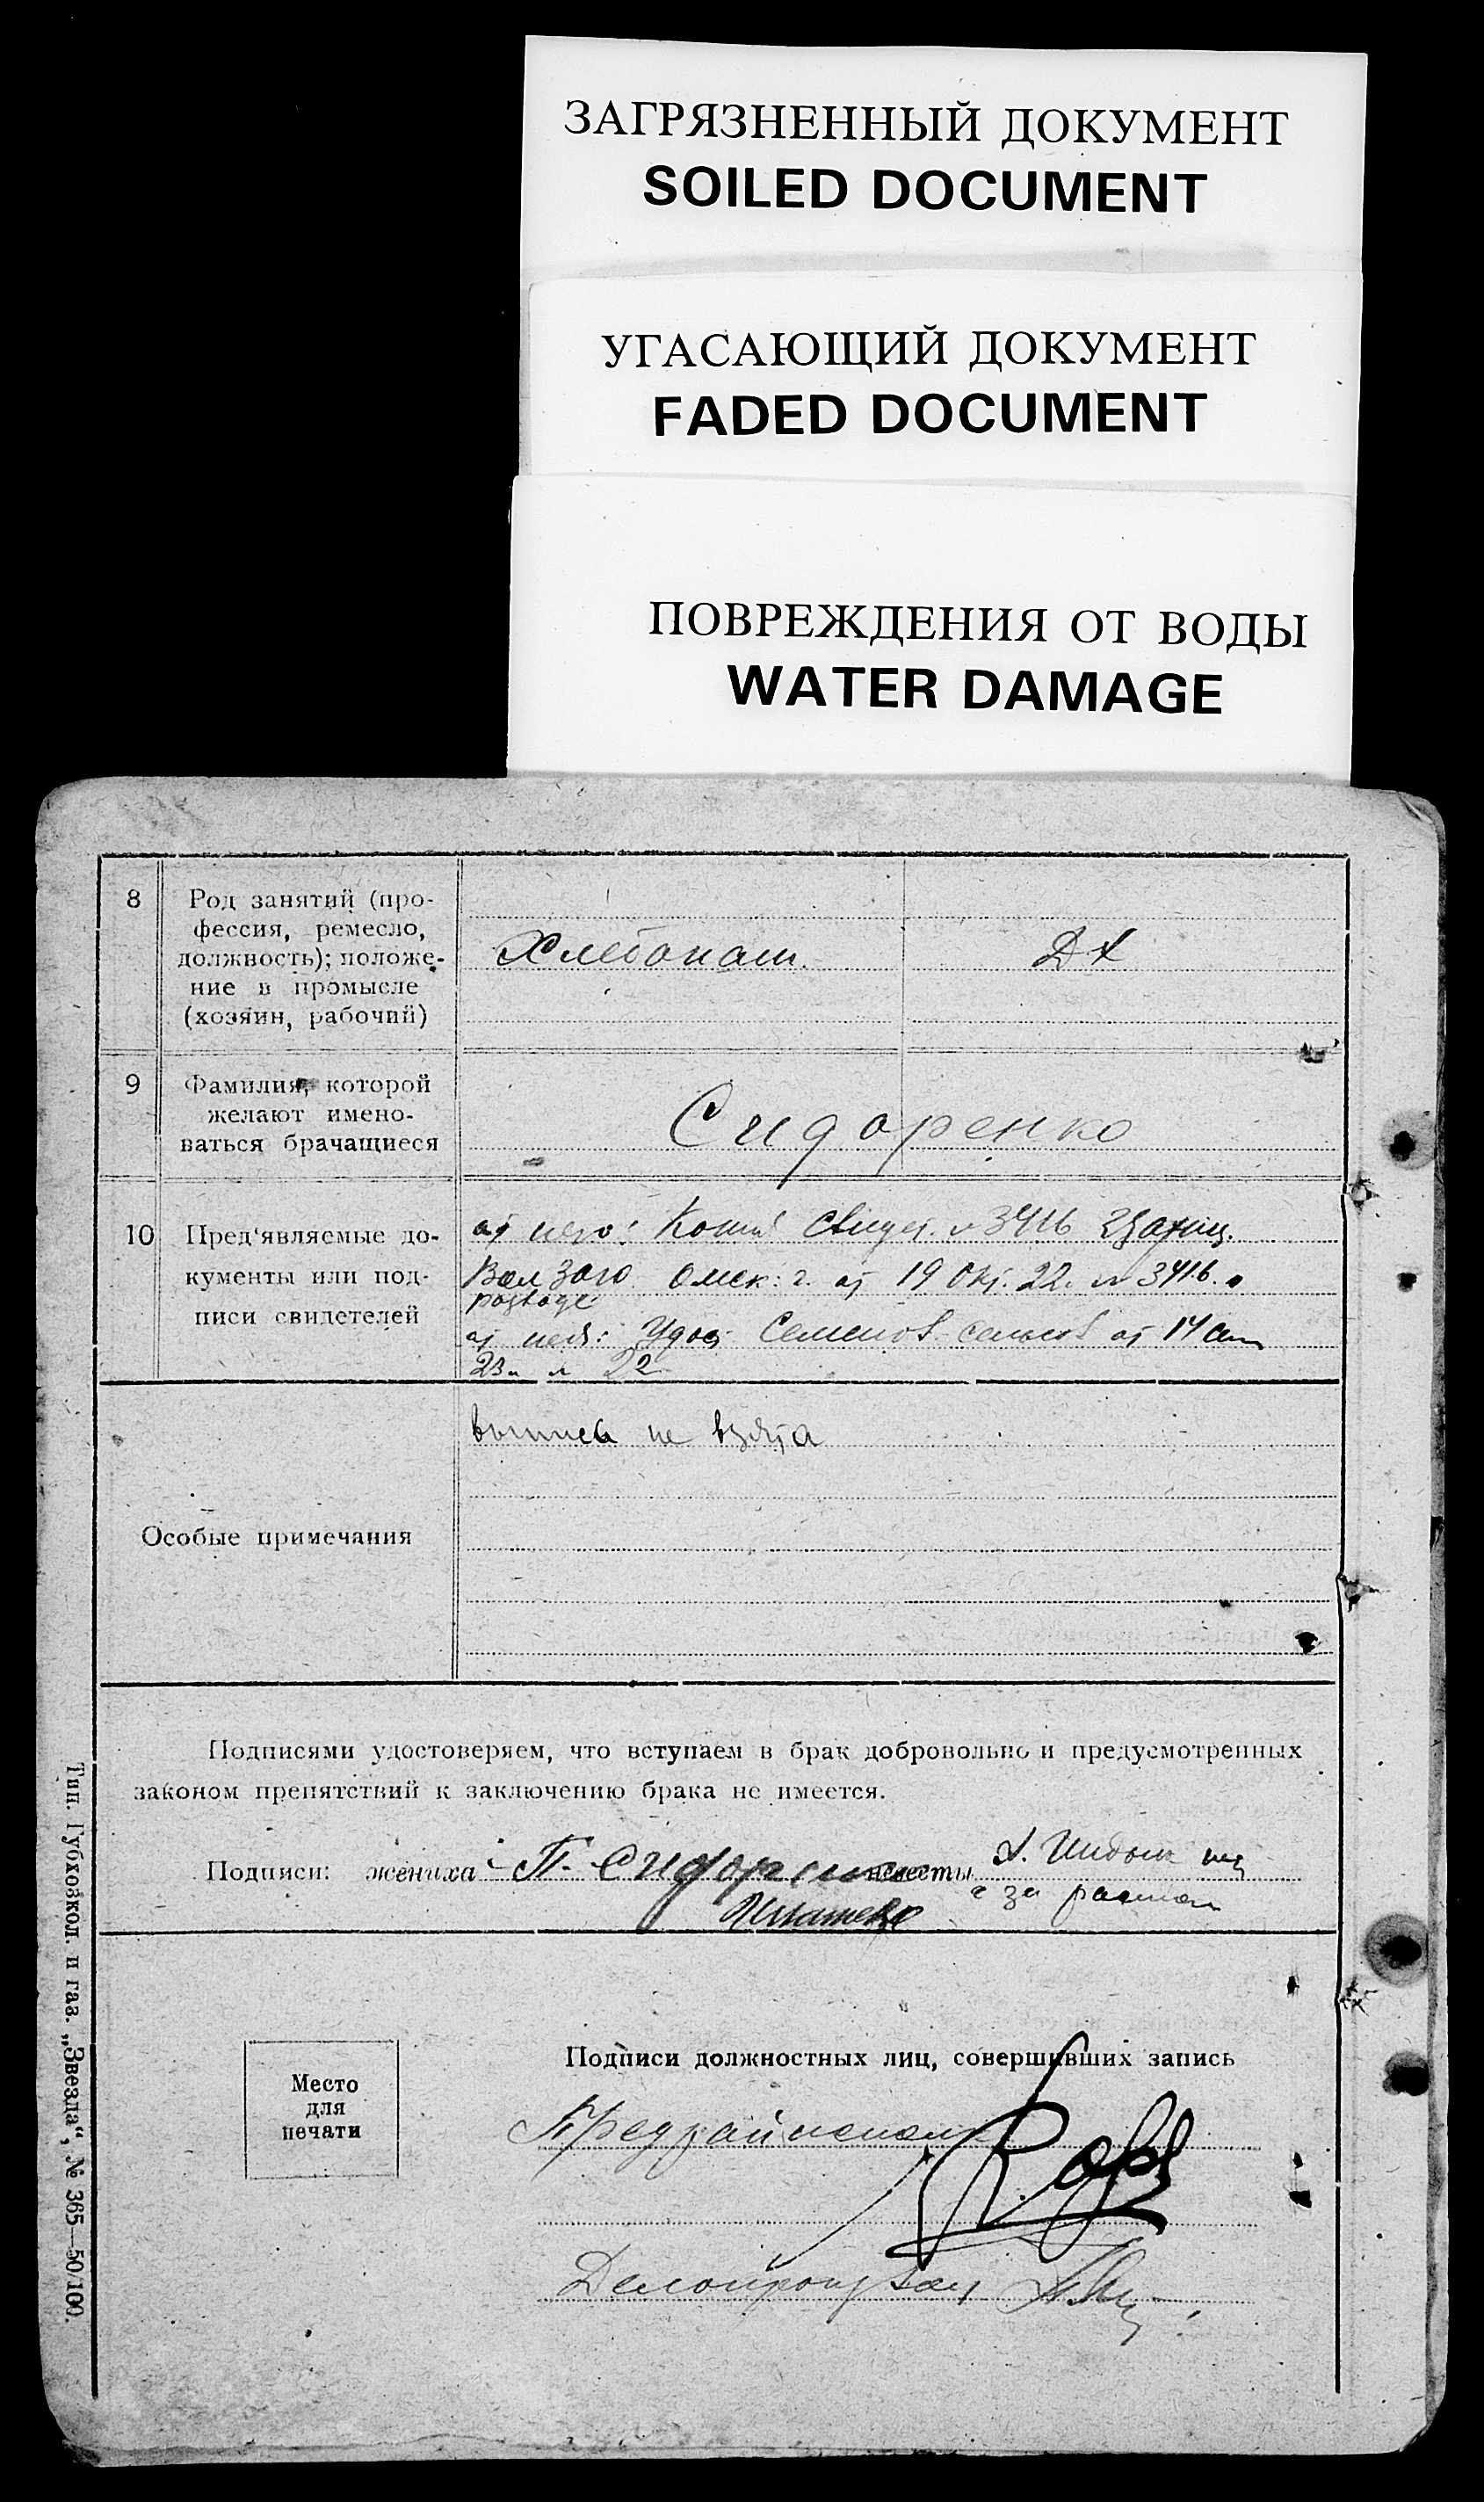 ЗАГРЯЗНЕННЫЙ ДОКУМЕНТ
SOILED DOCUMENT
УГАСАЮЩИЙ ДОКУМЕНТ
FADED DOCUMENT
ПОВРЕЖДЕНИЯ ОТ ВОДЫ
WATER DAMAGE
8
Род занятий (про-
фессия, ремесло,
должность); положе-
ние в промысле
(хозяин, рабочий)
Хлебопаш.
ДХ
9
Фамилия, которой
желают имено-
ваться брачащиеся
Сидоренко
10
Пред'являемые до-
кументы или под-
писи свидетелей
от него: Свидет. № 3416
Омск. г. от 19 Окт. 22 г. № 3416.
от нея: Удос. Семенов. сельсов от 14
23 г. № 22
выпись не взята
Особые примечания
Подписями удостоверяем, что вступаем в брак добровольно и предусмотренных
законом препятствий к заключению брака не имеется.
Подписи: жениха П. Сидоренко невесты
Место
для
печати
Подписи должностных лиц, совершивших запись
Предрайисполк
Делопроизвод
Тип. Губховкол. и газ. „Звезда“, № 365—50/100.